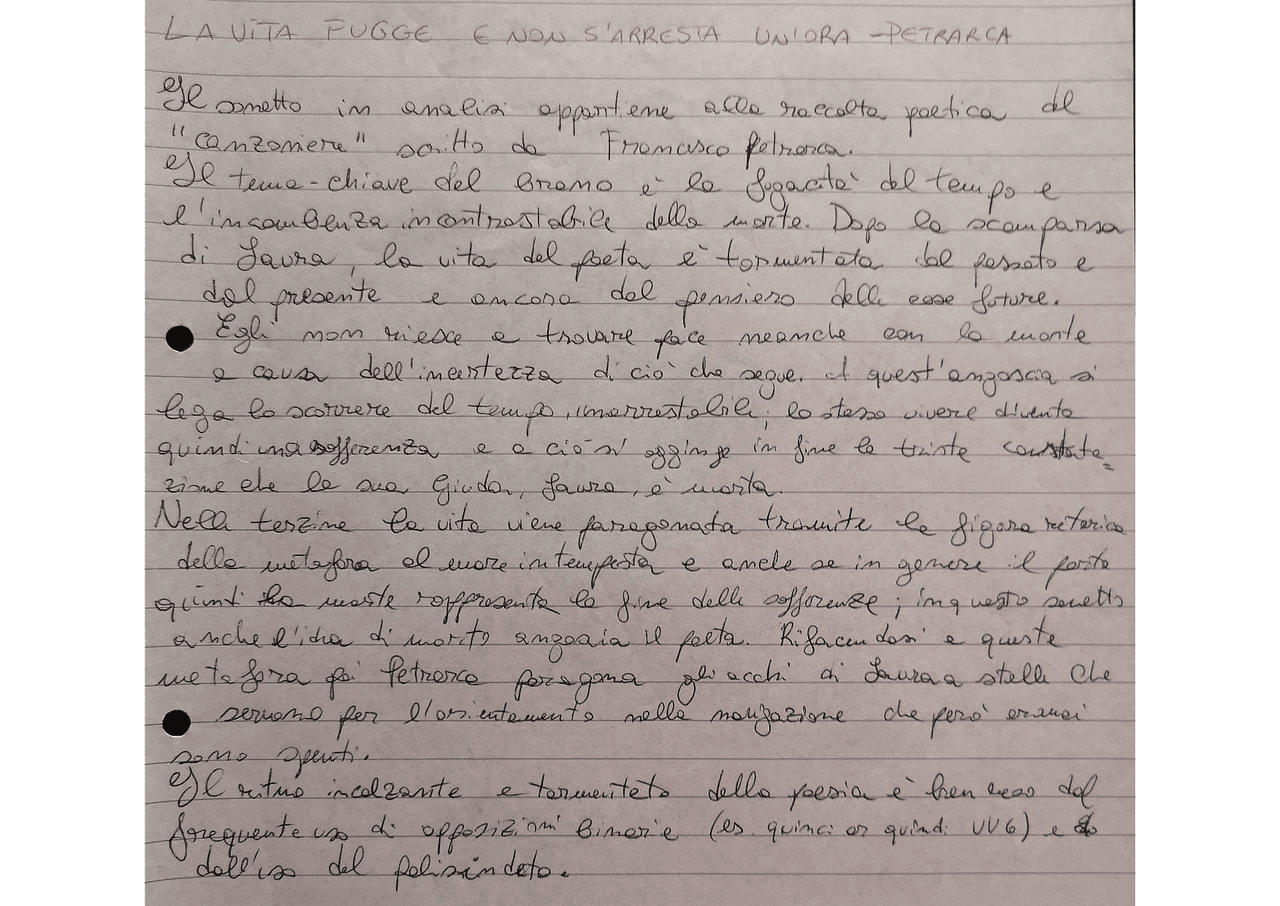 LA VITA FUGGE E NON S'ARRESTA UN'ORA - PETRARCA
Il sonetto in analisi appartiene alla raccolta poetica del
"canzoniere" scritto da Francesco Petrarca.
Il tema-chiave del brano è la fugacità del tempo e
l'incombenza incontrastabile della morte. Dopo la scomparsa
di Laura, la vita del poeta è tormentata dal passato e
dal presente e ancora dal pensiero delle cose future.
Egli non riesce a trovare pace neanche con la morte
a causa dell'incertezza di ciò che segue. A quest'angoscia si
lega lo scorrere del tempo, inarrestabile; lo stesso vivere diventa
quindi una sofferenza e a ciò si agginge in fine la triste constata=
zione che la sua Giuda, Laura, è morta.
Nelle terzine la vita viene paragonata tramite la figura retorica
della metafora al mare in tempesta e anche se in genere il porto
quindi la morte rappresenta la fine delle sofferenze; in questo sonetto
anche l'idea di morte angoscia il poeta. Rifacendosi a questa
metafora poi Petrarca paragona gli occhi di Laura a stelle che
servono per l'orientamento nella navigazione che però oramai
sono spenti.
Il ritmo incalzante e tormentato della poesia è ben reso dal
frequente uso di opposizioni binarie (es. quinci or quindi VV6) e
dall'uso del polisindeto.